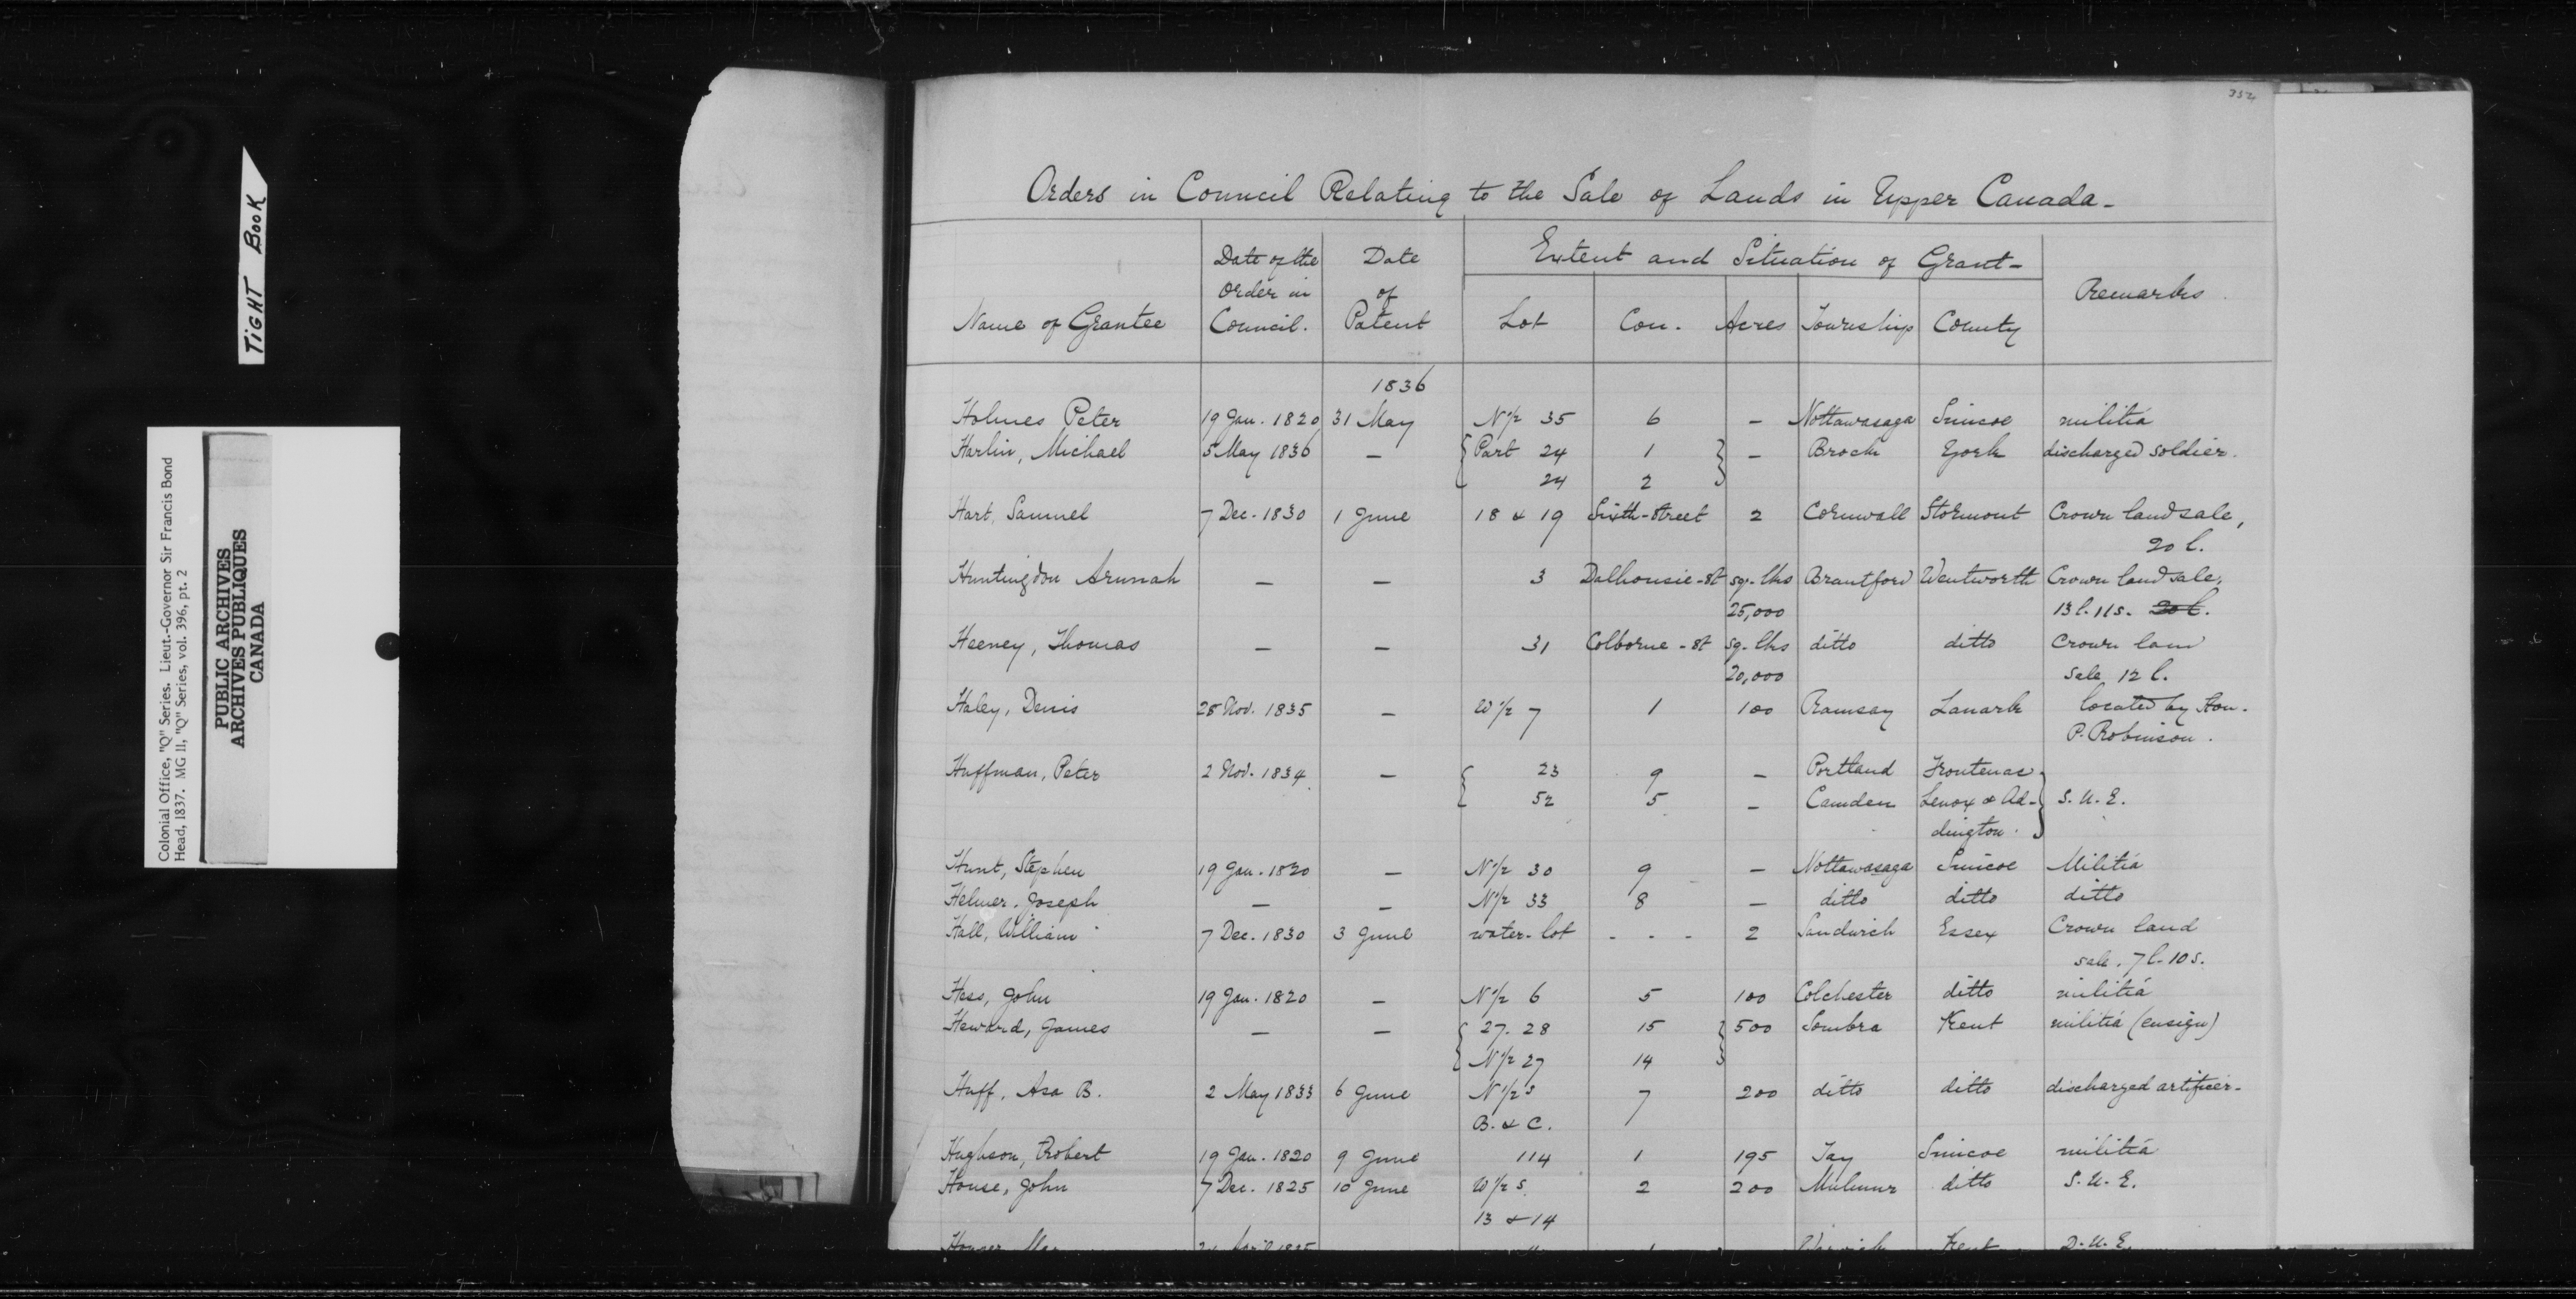 TIGHT BOOK
Colonial Office, "Q" Series. Lieut.-Governor Sir Francis Bond
Head, 1837. MG 11, "Q" Series, vol. 396, pt. 2
PUBLIC ARCHIVES
ARCHIVES PUBLIQUES
CANADA
352
Orders in Council Relating to the Sale of Lands in Upper Canada-
Name of Grantee Date of the Order in Council. Date of Patent Extent and Situation of Grant- Remarks
Lot Con. Acres Township County
1836
Holmes Peter 19 Jan. 1820 31 May N½ 35 6 - Nottawasaga Simcoe militia
Harlin, Michael 5 May 1836 - { Part 24 1 } - Brock York discharged soldier.
24 2
Hart, Samuel 7 Dec. 1830 1 June 18 & 19 Sixth-Street 2 Cornwall Stormont Crown land sale,
20 l.
Huntingdon Arunah - - 3 Dalhousie-St sq. lks Brantford Wentworth Crown land sale,
25,000 13 l. 11s. 20 l.
Heeney, Thomas - - 31 Colborne-St sq. lks ditto ditto Crown lan
20,000 sale 12 l.
Haley, Denis 28 Nov. 1835 - W½ 7 1 100 Ramsay Lanark located by Hon.
P. Robinson.
Huffman, Peter 2 Nov. 1834 - { 23 9 - Portland Frontenac }
52 5 - Camden Lenox & Ad- S.U.E.
dington.
Hunt, Stephen 19 Jan. 1820 - N½ 30 9 - Nottawasaga Simcoe Militia
Helmer, Joseph - - N½ 33 8 - ditto ditto ditto
Hall, William 7 Dec. 1830 3 June water-lot - - - 2 Sandwich Essex Crown land
sale. 7 l. 10 s.
Hess, John 19 Jan. 1820 - N½ 6 5 100 Colchester ditto militia
Heward, James - - { 27. 28 15 } 500 Sombra Kent militia (ensign)
N½ 27 14
Huff, Asa B. 2 May 1833 6 June N½ s 7 200 ditto ditto discharged artificer-
B. & C.
Hughson, Robert 19 Jan. 1820 9 June 114 1 195 Tay Simcoe militia
House, John 7 Dec. 1825 10 June W½ s. 2 200 Mulmur ditto S.U.E.
13 & 14
April 1835 Warwick Kent D.U.E.